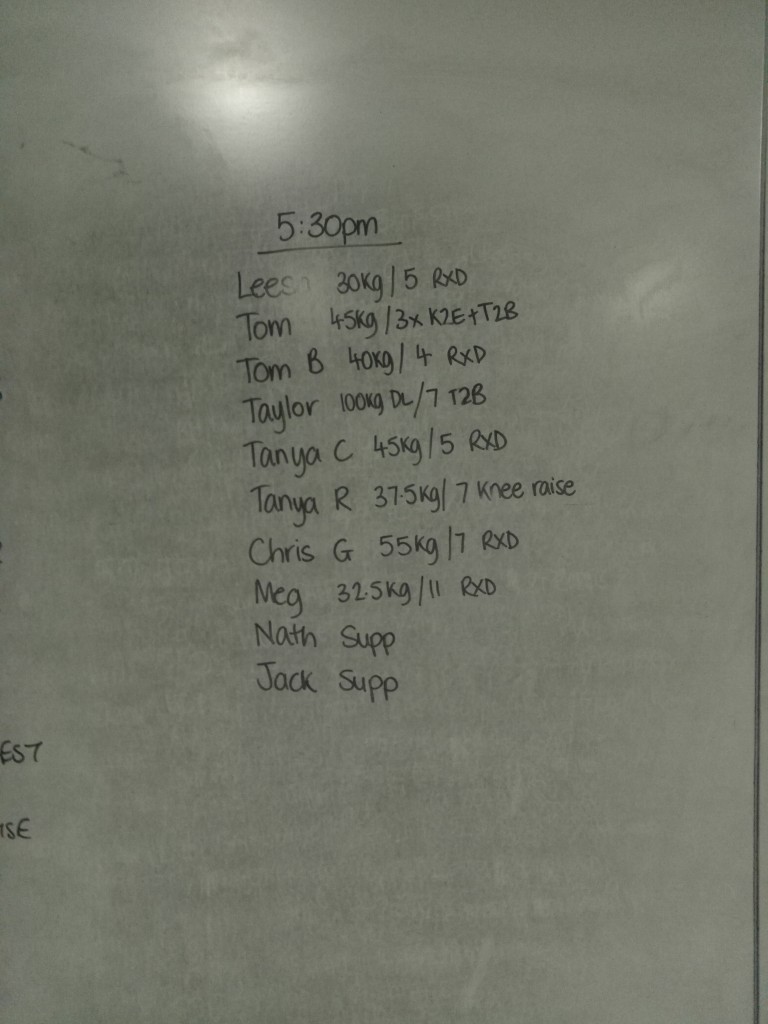 5:30pm
30kg/5 RXD
Tom 45kg/3x K2E+T2B
Tom B 40kg/4 RXD
Taylor 100kg DL/7 T2B
Tanya C 45kg/5 RXD
Tanya R 37.5kg/7 Knee raise
Chris G 55kg/7 RXD
Meg 32.5kg/11 RXD
Nath Supp
Jack Supp
EST